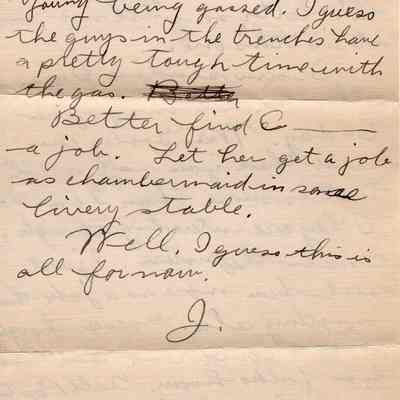 young being gassed. I guess
the guys in the trenches have
a pretty tough time with
the gas. Better
Better find C——
a job. Let her get a job
as chambermaid in some
livery stable.
Well, I guess this is
all for now.
J.